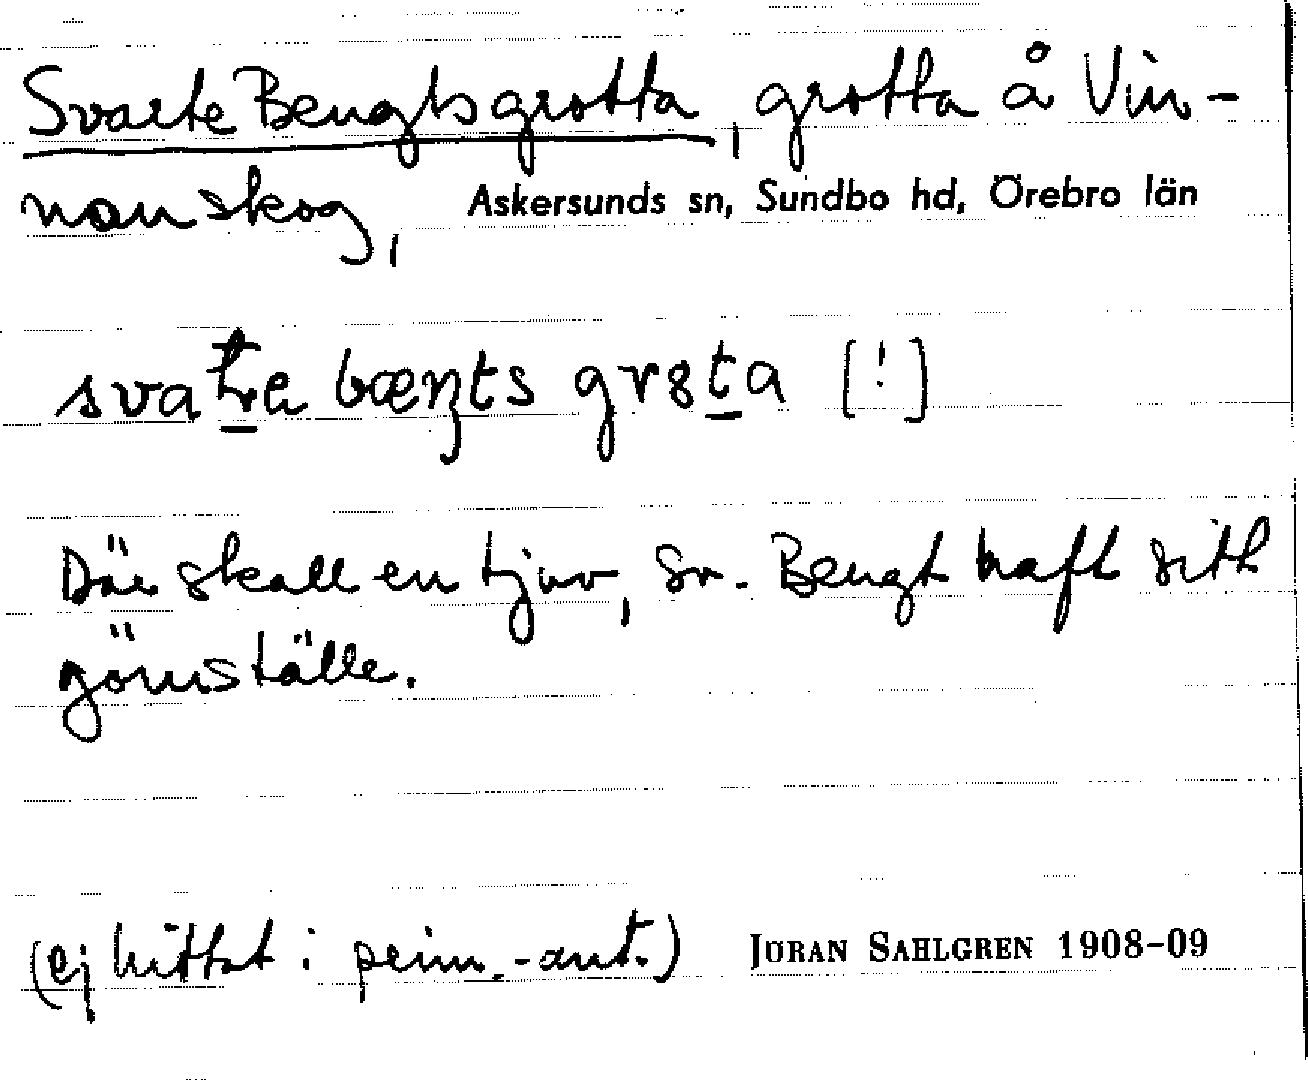 Svarte Bengtsgrotta, grotta å Vin-
nan skog, Askersunds sn, Sundbo hd, Örebro län
grɷta [!]
Där skall en tjuv, Sv. Bengt haft sitt
gömställe.
(ej hittat i prim.-ant.) JÖRAN SAHLGREN 1908-09